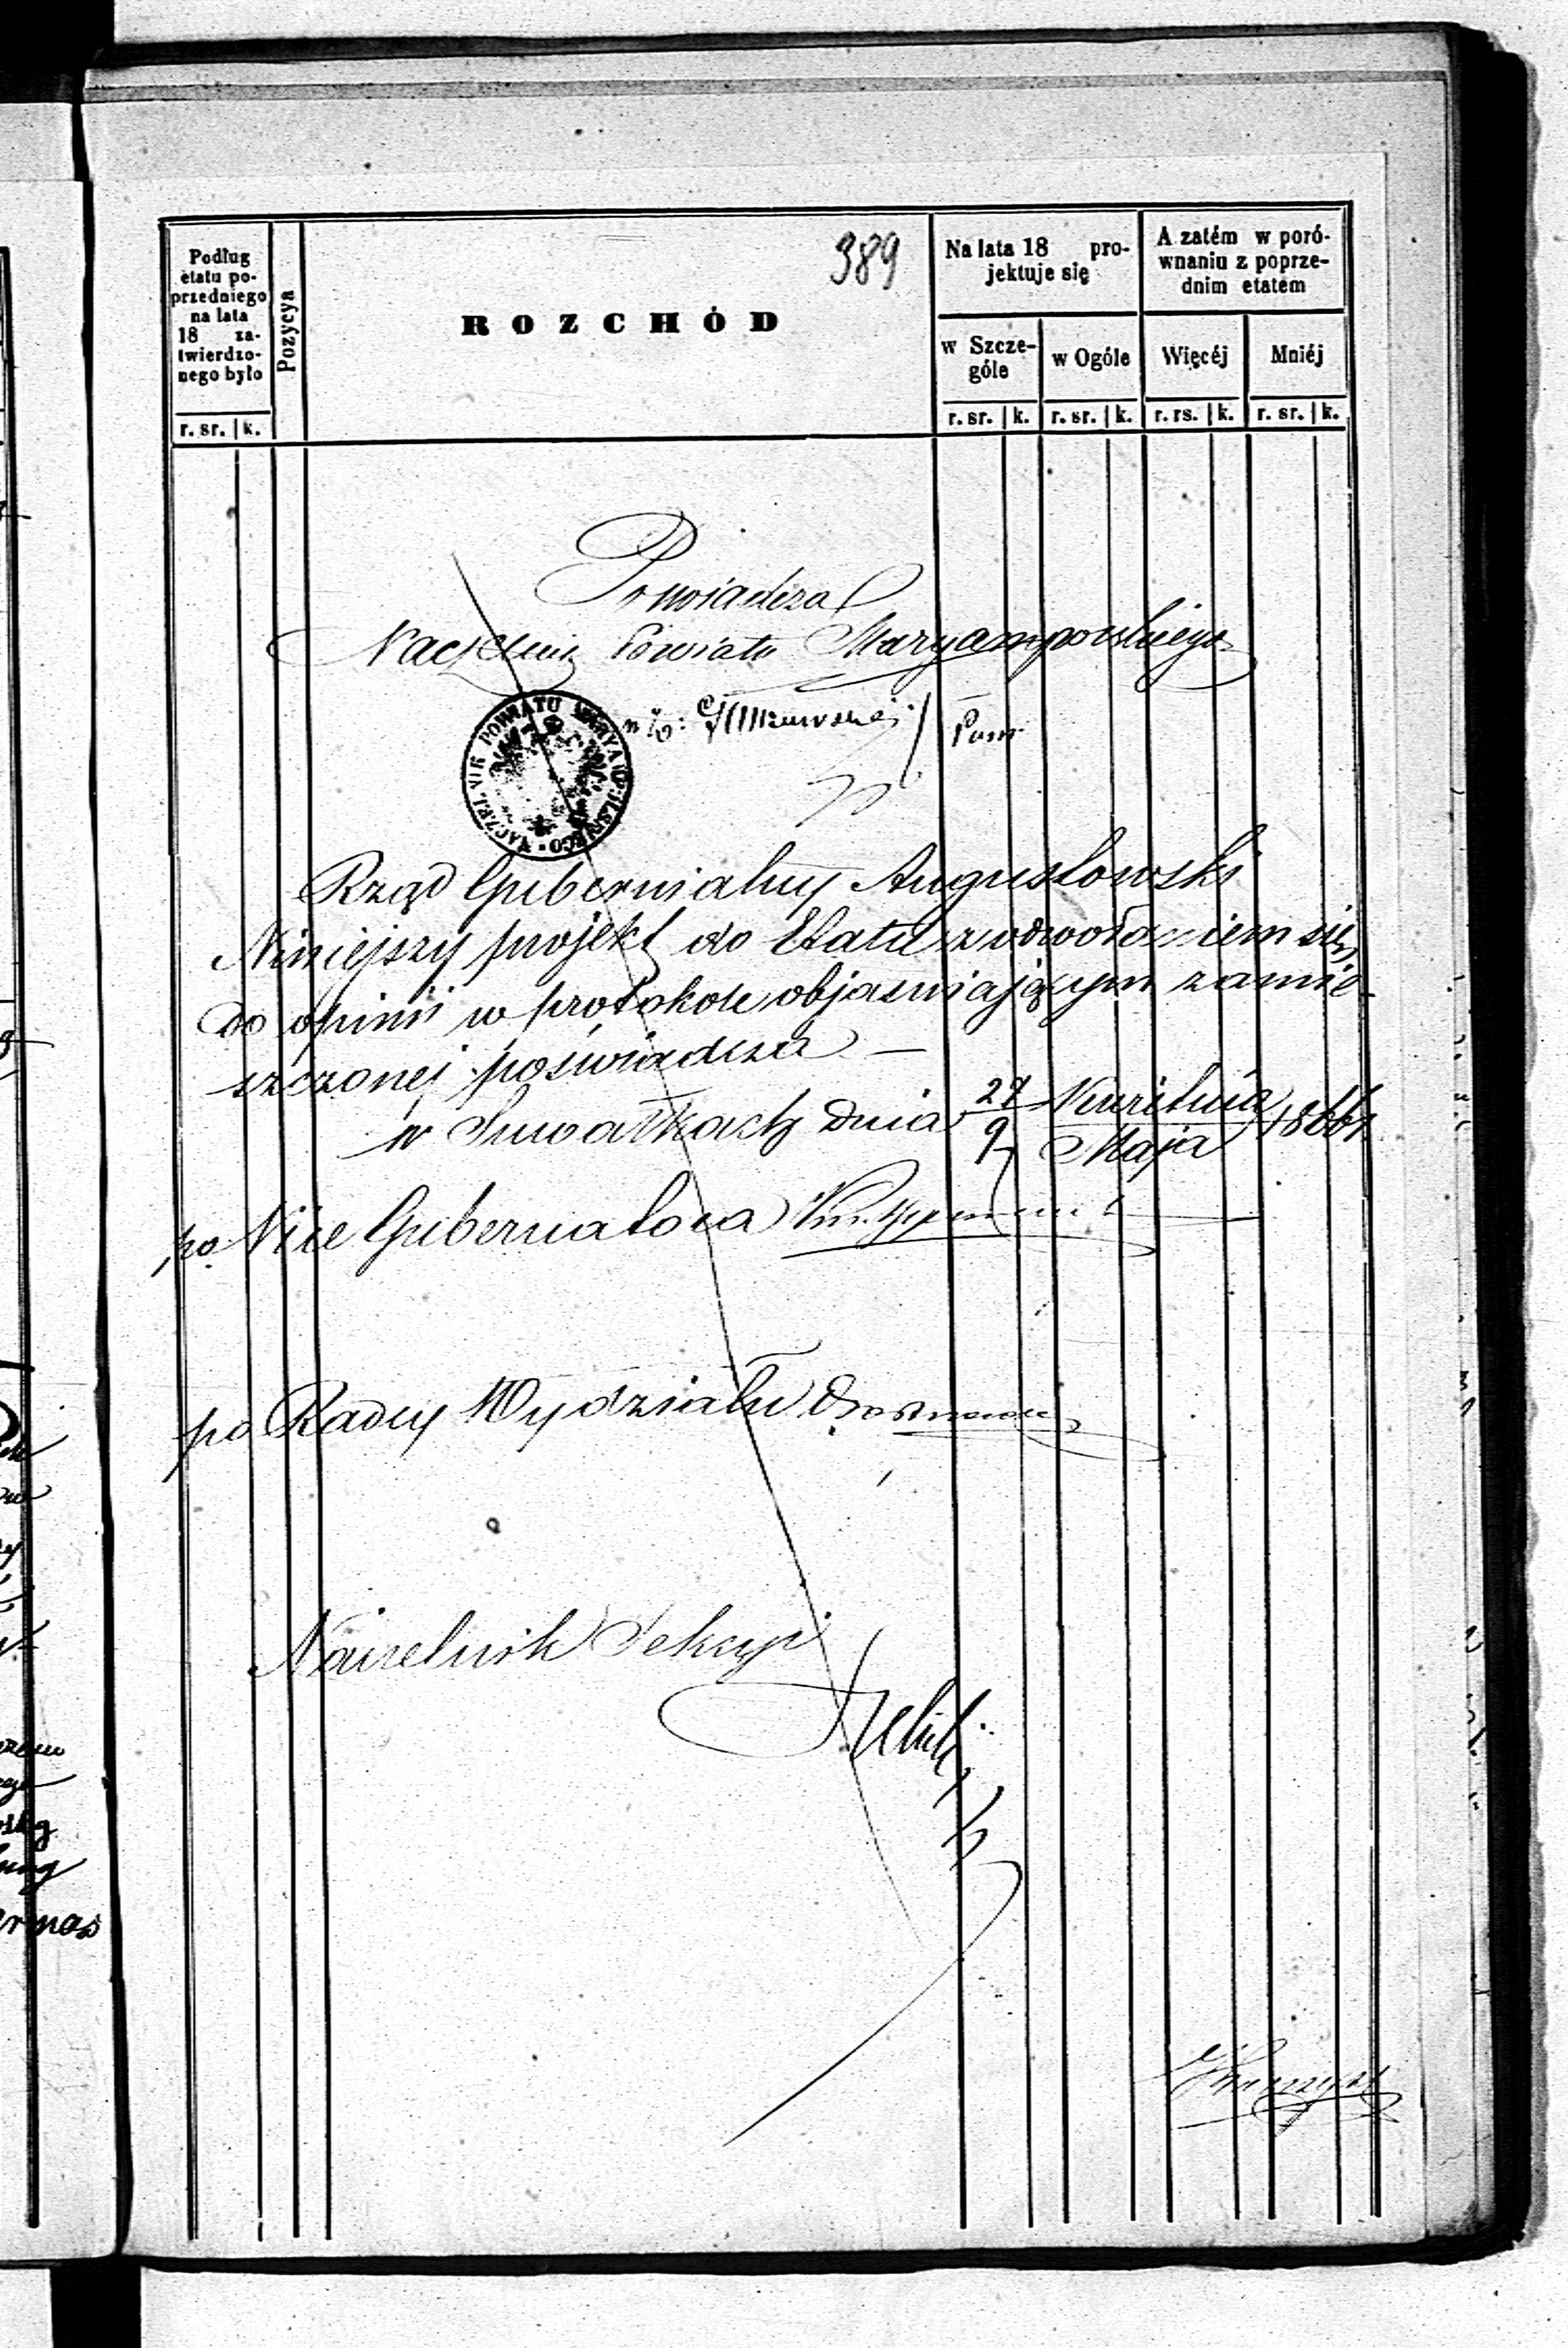 389
Podług
etatu po-
przedniego
na lata
18 za-
twierdzo-
nego było
Pozycya
ROZCHÓD
Na lata 18 pro-
jektuje się
A zatém w poró-
wnaniu z poprze-
dnim etatem
w Szcze-
góle
w Ogóle
Więcéj
Mniéj
r. sr. k.
r. sr. k.
r. sr. k.
r. rs. k.
r. sr. k.
Poswiadcza
Naczelnik Powiatu Maryampolskiego
NACZELNIK POWIATU MARYAMPOLSKIEGO
Rząd Gubernialny Augustowski
Niniejszy projekt do Etatu z odwołaniem się
do opinii w protokole objasniającym zamie-
szczonej poświadcza —
w Suwałkach dnia 27 Kwietnia / 9 Maja 1866 r.
po Vice Gubernatora
po Radcy Wydziału
Naczelnik Sekcyi